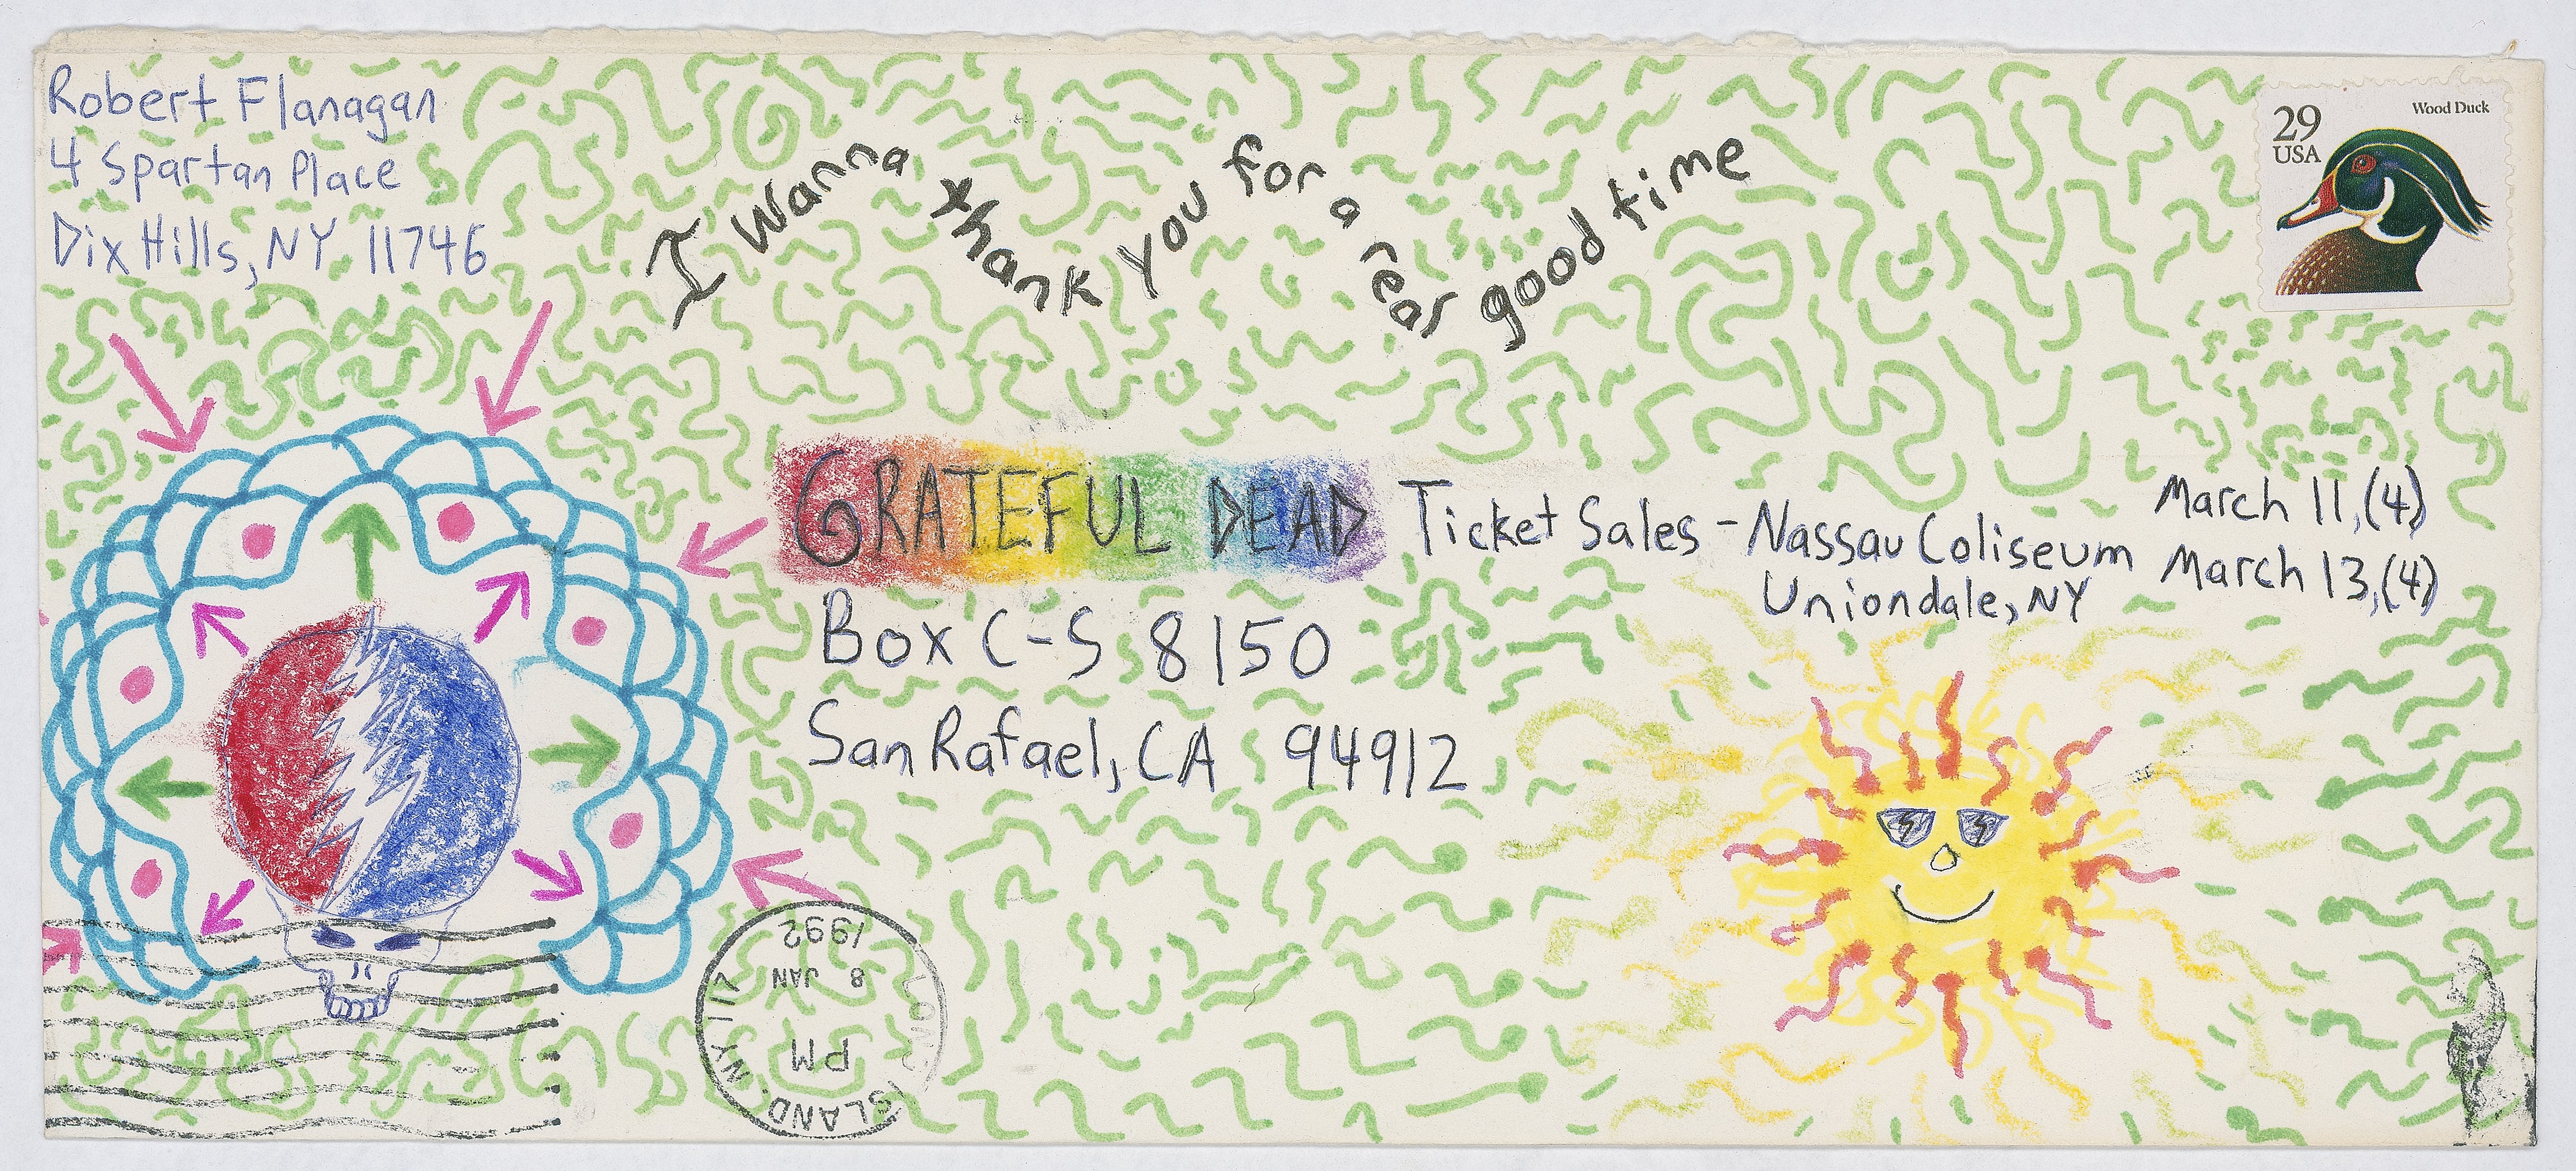 Robert Flanagan
4 Spartan Place
Dix Hills, NY 11746
29
USA
Wood Duck
I wanna thank you for a real good time
GRATEFUL DEAD Ticket Sales - Nassau Coliseum
Uniondale, NY
March 11, (4)
March 13, (4)
Box C-S 8150
San Rafael, CA 94912
LONG ISLAND, NY 117
PM
8 JAN
1992